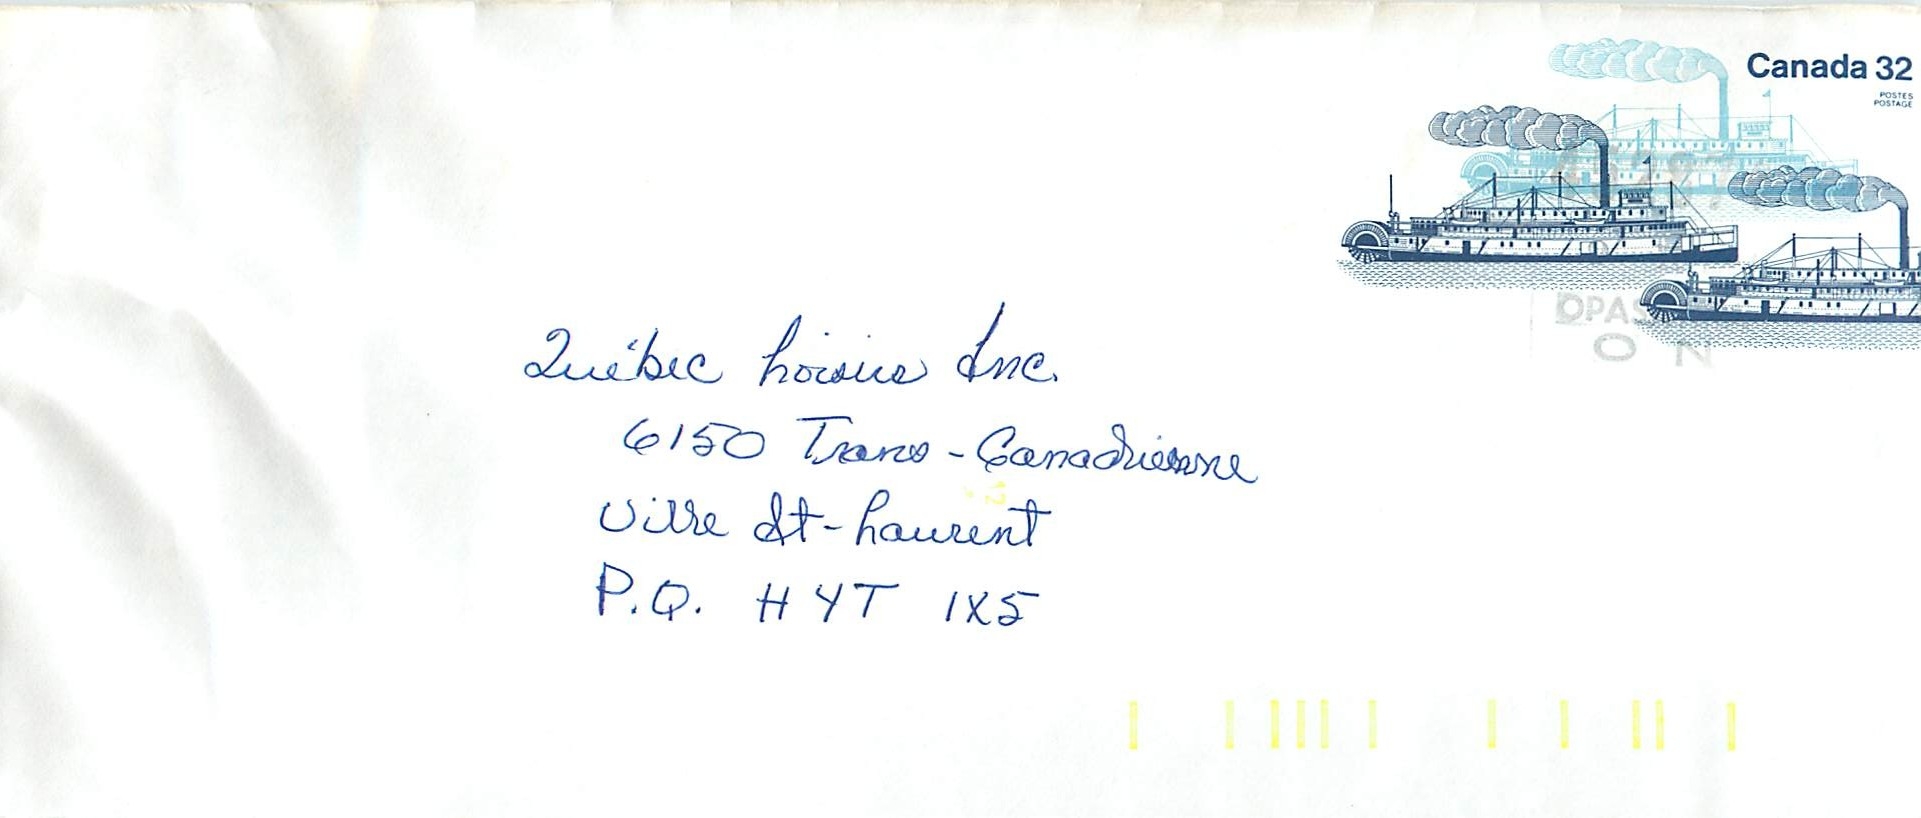 Canada 32
POSTES
POSTAGE
OPAS
ON
Québec Loisirs Inc.
6150 Trans-Canadienne
Ville St-Laurent
P.Q. H4T 1X5